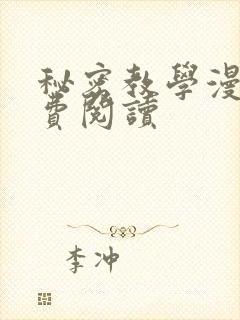 秘密教學漫
費閱讀
李冲